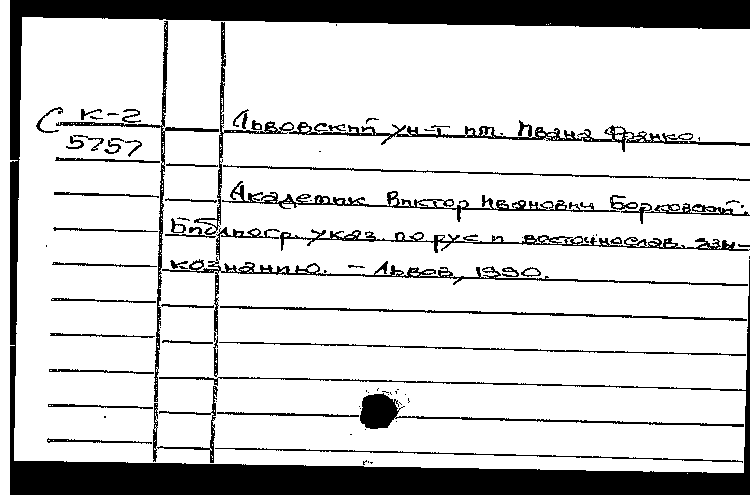 С К-2
5757
Львовский ун-т им. Ивана Франко.
Академик Виктор Иванович Борковский:
Библиогр. указ. по рус. и восточнослав. язы-
кознанию. – Львов, 1990.